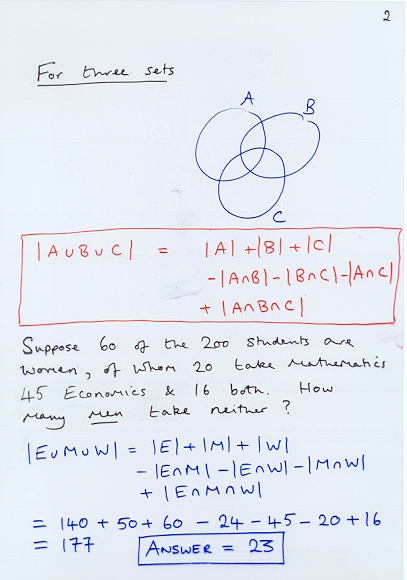 2
For three sets
A
B
C
|A∪B∪C| = |A| + |B| + |C|
- |A∩B| - |B∩C| - |A∩C|
+ |A∩B∩C|
Suppose 60 of the 200 students are
women, of whom 20 take Mathematics
45 Economics & 16 both. How
many men take neither?
|E∪M∪W| = |E| + |M| + |W|
- |E∩M| - |E∩W| - |M∩W|
+ |E∩M∩W|
= 140 + 50 + 60 - 24 - 45 - 20 + 16
= 177 ANSWER = 23